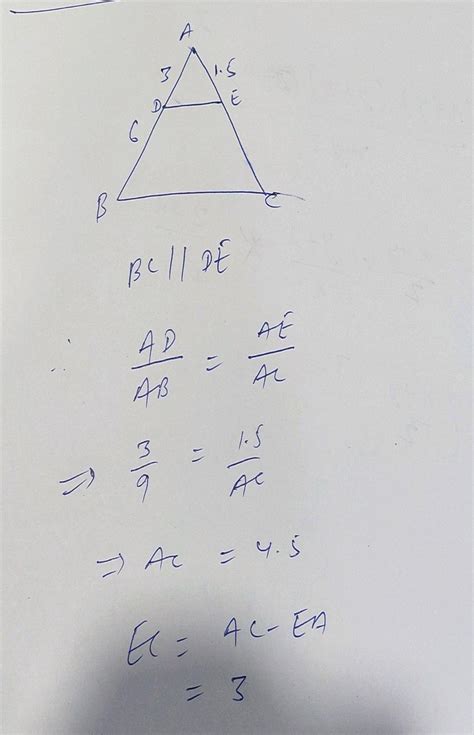 A
3 1.5
D E
6
B C
BC || DE
∴ AD/AB = AE/AC
⇒ 3/9 = 1.5/AC
⇒ AC = 4.5
EC = AC - EA
= 3